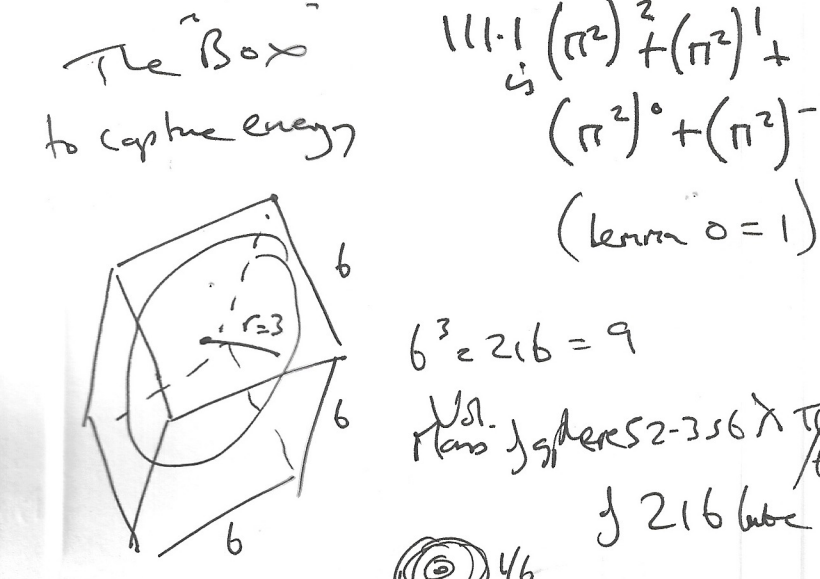 The "Box"
to capture energy
111.1 (π²)² + (π²)¹ +
is
(π²)⁰ + (π²)⁻
(lemma 0 = 1)
6
r=3
6
6
6³ = 216 = 9
Vol.
Mass of sphere 52-356
of 216 cube
6